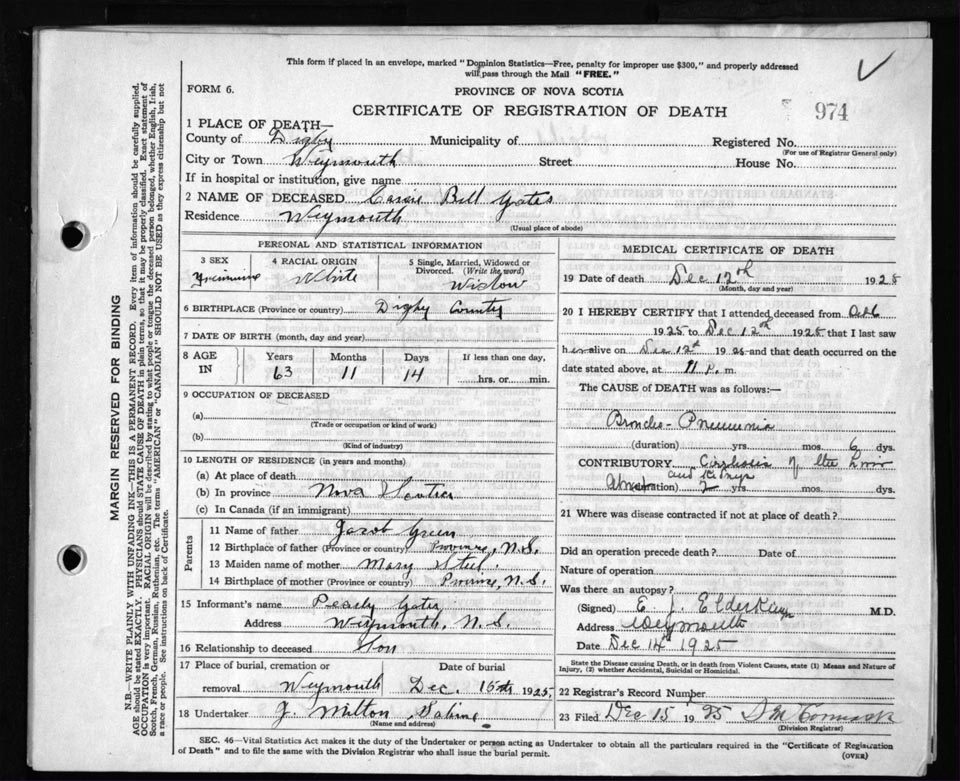 This form if placed in an envelope, marked "Dominion Statistics—Free, penalty for improper use $300," and properly addressed
will pass through the Mail "FREE."
FORM 6.
PROVINCE OF NOVA SCOTIA
CERTIFICATE OF REGISTRATION OF DEATH
974
1 PLACE OF DEATH—
County of Digby Municipality of Registered No.
(For use of Registrar General only)
City or Town Weymouth Street House No.
If in hospital or institution, give name
2 NAME OF DECEASED Cassie Bell Yates
Residence Weymouth
(Usual place of abode)
PERSONAL AND STATISTICAL INFORMATION
3 SEX 4 RACIAL ORIGIN 5 Single, Married, Widowed or
Divorced. (Write the word)
White Widow
6 BIRTHPLACE (Province or country) Digby County
7 DATE OF BIRTH (month, day and year)
8 AGE IN Years Months Days If less than one day,
63 11 14 hrs. or min.
9 OCCUPATION OF DECEASED
(a)
(Trade or occupation or kind of work)
(b)
(Kind of industry)
10 LENGTH OF RESIDENCE (in years and months)
(a) At place of death
(b) In province Nova Scotia
(c) In Canada (if an immigrant)
Parents
11 Name of father Jacob Green
12 Birthplace of father (Province or country) Province, N.S.
13 Maiden name of mother Mary Steel
14 Birthplace of mother (Province or country) Province, N.S.
15 Informant's name Pearly Yates
Address Weymouth, N.S.
16 Relationship to deceased Son
17 Place of burial, cremation or Date of burial
removal Weymouth Dec. 15th 1925
18 Undertaker J. Milton Sabine
(Name and address)
MEDICAL CERTIFICATE OF DEATH
19 Date of death Dec 12th 1925
(Month, day and year)
20 I HEREBY CERTIFY that I attended deceased from Oct 6
1925 to Dec 12th 1925 that I last saw
her alive on Dec 12th 1925 and that death occurred on the
date stated above, at 11 P. m.
The CAUSE OF DEATH was as follows:
Broncho-Pneumonia
(duration) yrs. mos. 6 dys.
CONTRIBUTORY Cirrhosis of the Liver
and Kidneys
About (duration) 2 yrs. mos. dys.
21 Where was disease contracted if not at place of death?
Did an operation precede death? Date of
Nature of operation
Was there an autopsy?
(Signed) E. J. Elderkin M.D.
Address Weymouth
Date Dec 14 1925
State the Disease causing Death, or in death from Violent Causes, state (1) Means and Nature of
Injury, (2) whether Accidental, Suicidal or Homicidal.
22 Registrar's Record Number
23 Filed Dec 15 1925
(Division Registrar)
SEC. 46—Vital Statistics Act makes it the duty of the Undertaker or person acting as Undertaker to obtain all the particulars required in the "Certificate of Registration
of Death" and to file the same with the Division Registrar who shall issue the burial permit.
(OVER)
MARGIN RESERVED FOR BINDING
N.B.—WRITE PLAINLY WITH UNFADING INK—THIS IS A PERMANENT RECORD. Every item of information should be carefully supplied.
AGE should be stated EXACTLY. PHYSICIANS should STATE CAUSE OF DEATH in plain terms, so that it may be properly classified. Exact statement of
OCCUPATION is very important. RACIAL ORIGIN will be described by stating to what people or tongue the deceased person belonged, whether English, Irish,
Scotch, French, German, Russian, Ruthenian, etc. The terms "AMERICAN" or "CANADIAN" SHOULD NOT BE USED as they express citizenship but not
a race or people. See instructions on back of Certificate.